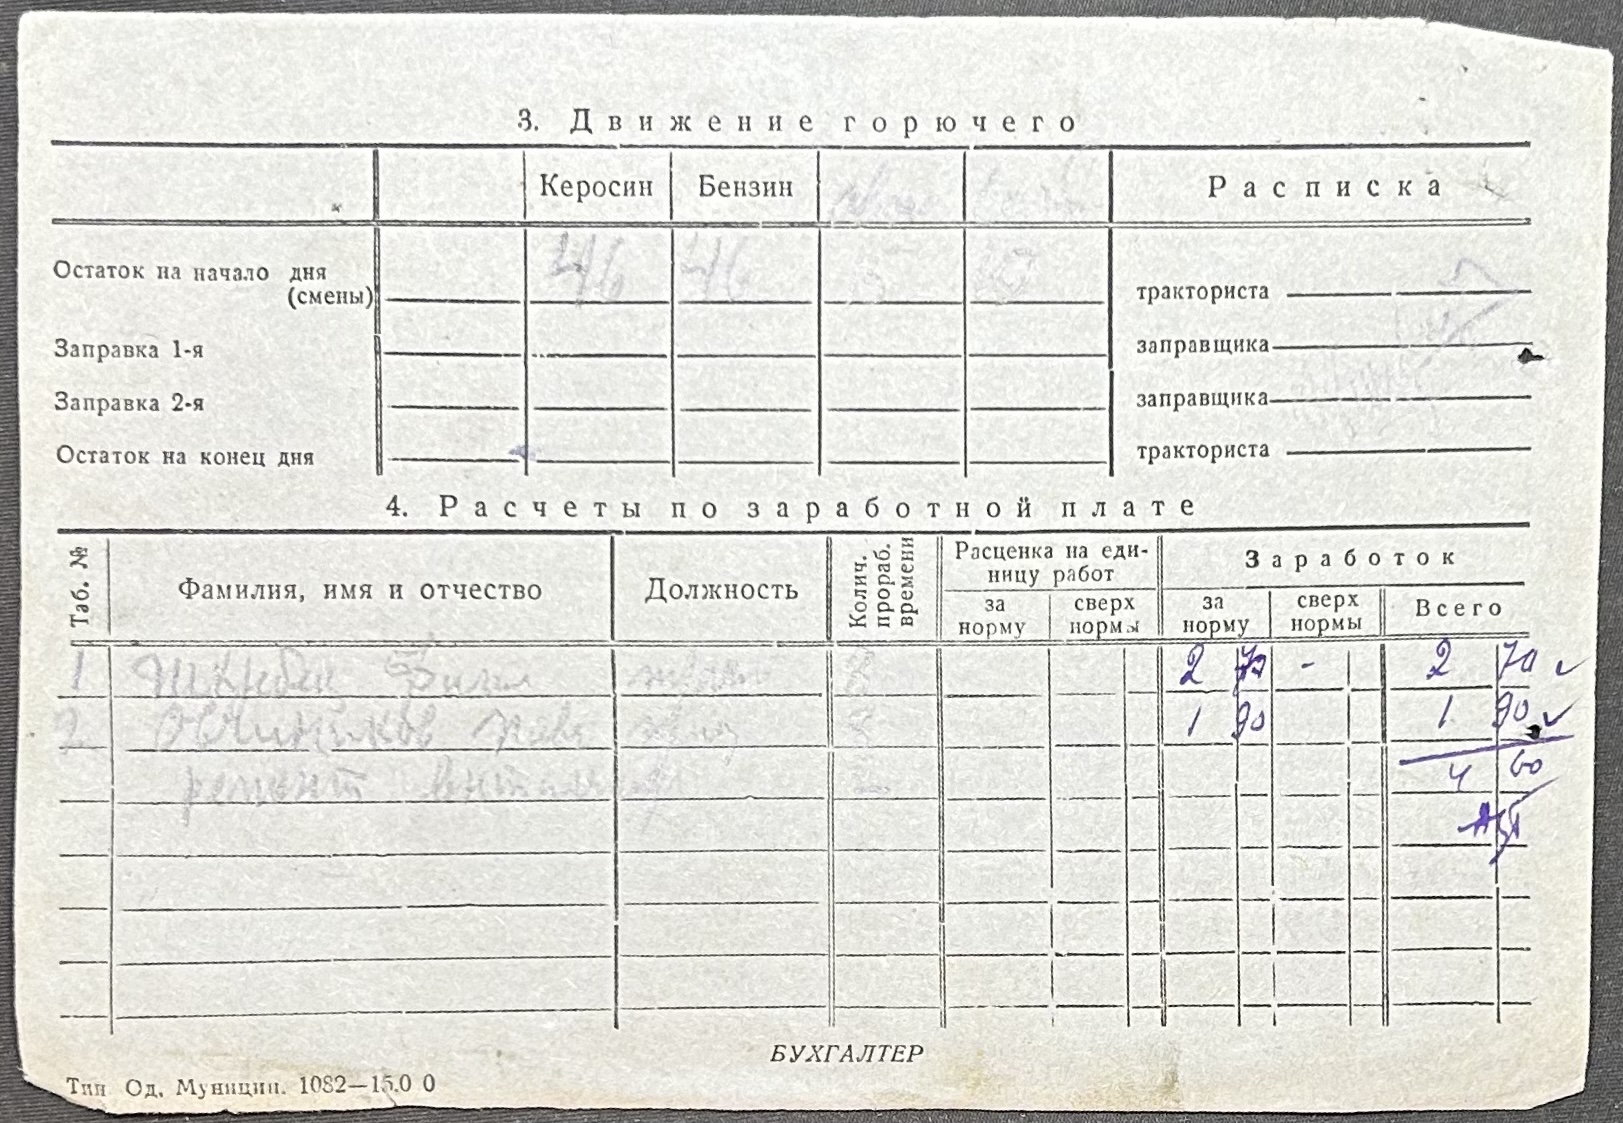 3. Движение горючего
Керосин Бензин Расписка
Остаток на начало дня
(смены) 46 46
тракториста
Заправка 1-я
заправщика
Заправка 2-я
заправщика
Остаток на конец дня
тракториста
4. Расчеты по заработной плате
Таб. №
Фамилия, имя и отчество
Должность
Колич.
прораб.
времени
Расценка на еди-
ницу работ
за
норму
сверх
нормы
Заработок
за
норму
сверх
нормы
Всего
1 2 70 - 2 70
2 Овчиников 1 90 1 90
ремонт 4 60
БУХГАЛТЕР
Тип Од. Муницип. 1082—15.0 0